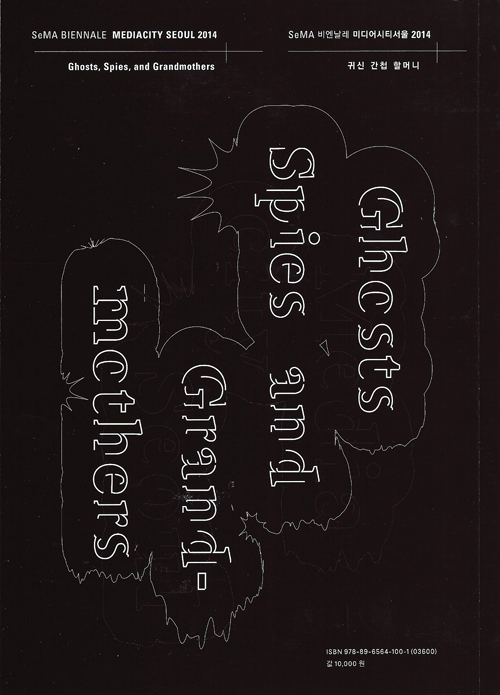 SeMA BIENNALE MEDIACITY SEOUL 2014
Ghosts, Spies, and Grandmothers
SeMA 비엔날레 미디어시티서울 2014
귀신 간첩 할머니
Ghosts
Spies and
Grand-
mothers
ISBN 978-89-6564-100-1 (03600)
값 10,000 원